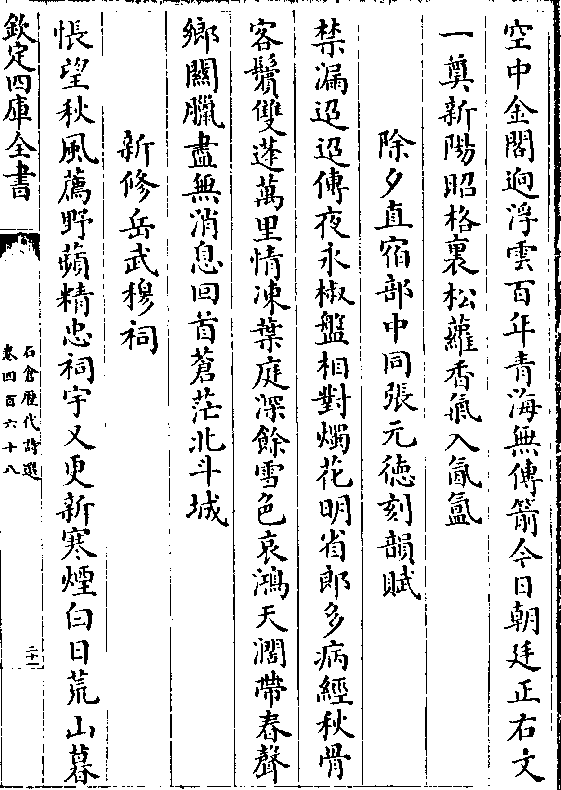 空中金閣逈浮雲百年青海無傳箭今日朝廷正右文
一奠新陽昭格裏松蘿香氣入氤氳
除夕直宿部中同張元徳刻韻賦
禁漏迢迢傳夜永椒盤相對燭花明省郎多病經秋骨
客鬢雙蓬萬里情凍葉庭深餘雪色哀鴻天濶帶春聲
鄉關臘盡無消息回首蒼茫北斗城
新修岳武穆祠
悵望秋風薦野蘋精忠祠宇又更新寒煙白日荒山暮
欽定四庫全書
石倉歷代詩選
卷四百六十八
二十一